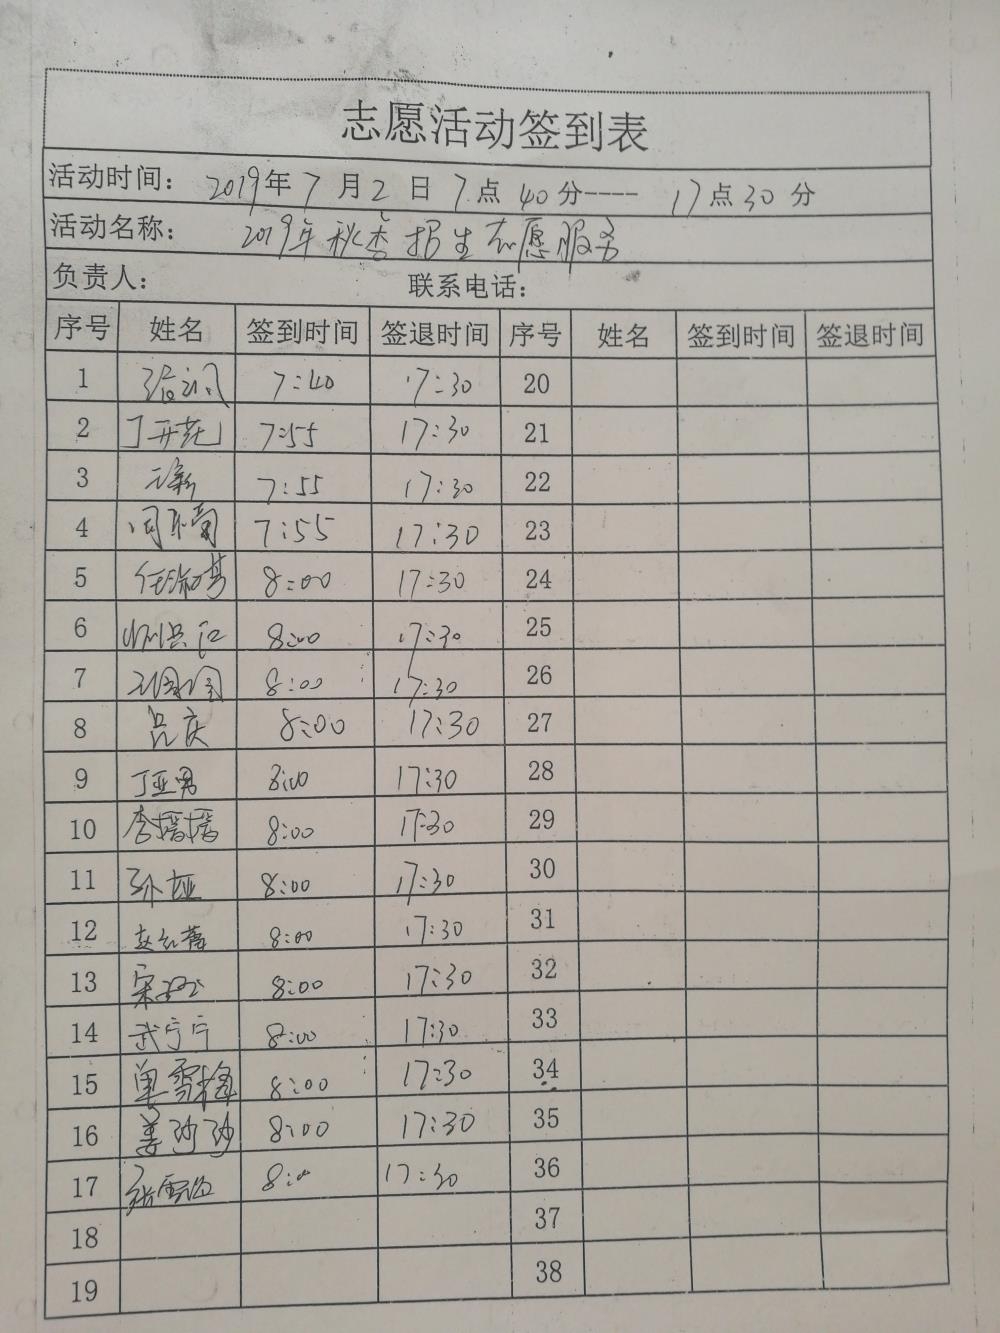 志愿活动签到表
活动时间： 2019年 7 月 2 日 7 点 40 分---- 17 点 30 分
活动名称： 2019年秋季招生志愿服务
负责人： 联系电话：
序号 姓名 签到时间 签退时间 序号 姓名 签到时间 签退时间
1 7:40 17:30 20
2 7:55 17:30 21
3 7:55 17:30 22
4 7:55 17:30 23
5 8:00 17:30 24
6 8:00 17:30 25
7 8:00 17:30 26
8 吕庆 8:00 17:30 27
9 丁亚男 8:00 17:30 28
10 8:00 17:30 29
11 8:00 17:30 30
12 8:00 17:30 31
13 8:00 17:30 32
14 武宁宁 8:00 17:30 33
15 8:00 17:30 34
16 8:00 17:30 35
17 8:00 17:30 36
18 37
19 38